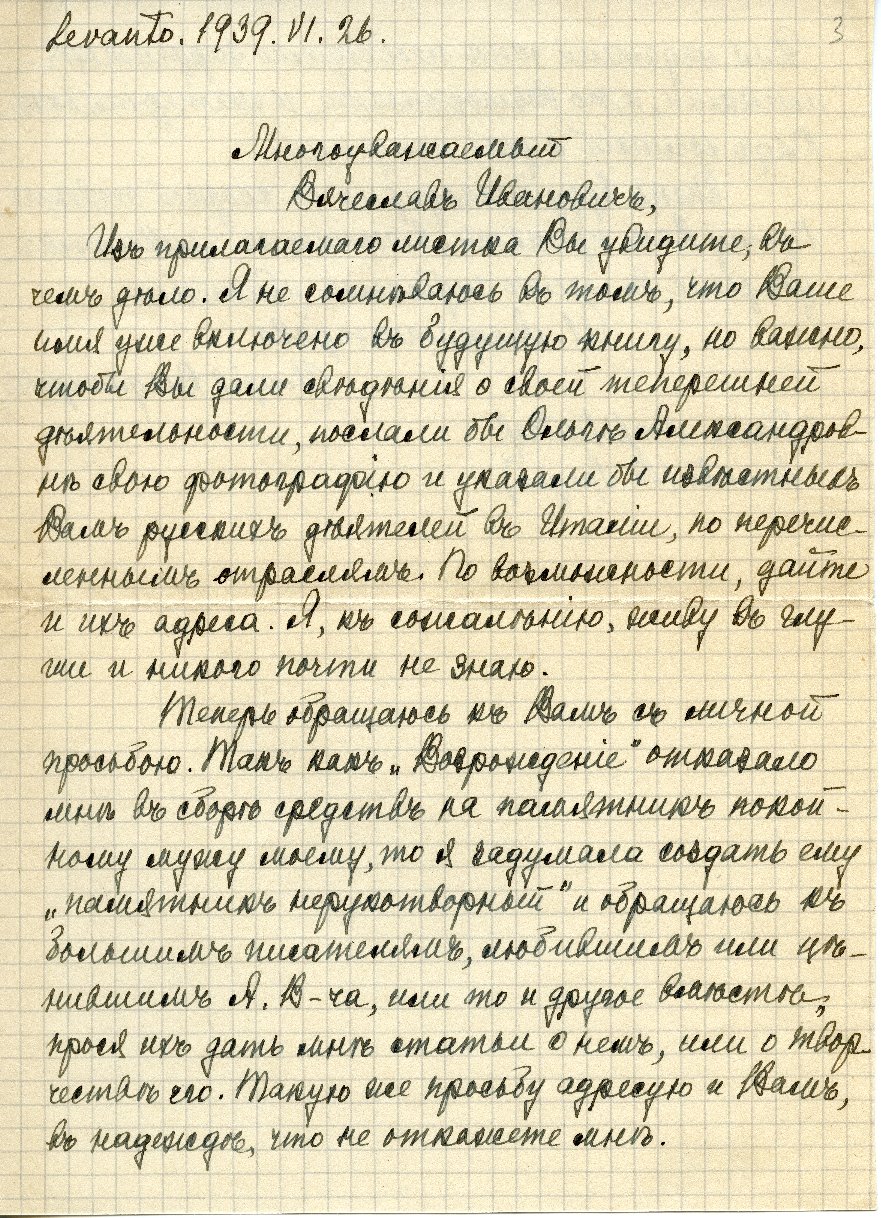 Levanto. 1939. VI. 26.
3
Многоуважаемый
Вячеславъ Ивановичъ,
Изъ прилагаемаго листка Вы увидите, въ
чемъ дѣло. Я не сомнѣваюсь въ томъ, что Ваше
имя уже включено въ будущую книгу, но важно,
чтобы Вы дали свѣдѣнія о своей теперешней
дѣятельности, послали бы Ольгѣ Александров-
нѣ свою фотографію и указали бы извѣстныхъ
Вамъ русскихъ дѣятелей въ Италіи, по перечис-
леннымъ отраслямъ. По возможности, дайте
и ихъ адреса. Я, къ сожалѣнію, живу въ глу-
ши и никого почти не знаю.
Теперь обращаюсь къ Вамъ съ личной
просьбою. Такъ какъ „Возрожденіе" отказало
мнѣ въ сборѣ средствъ на памятникъ покой-
ному мужу моему, то я задумала создать ему
„памятникъ нерукотворный" и обращаюсь къ
большимъ писателямъ, любившимъ или цѣ-
нившимъ А. В-ча, или то и другое вмѣстѣ,
прося ихъ дать мнѣ статьи о немъ, или о твор-
чествѣ его. Такую же просьбу адресую и Вамъ,
въ надеждѣ, что не откажете мнѣ.